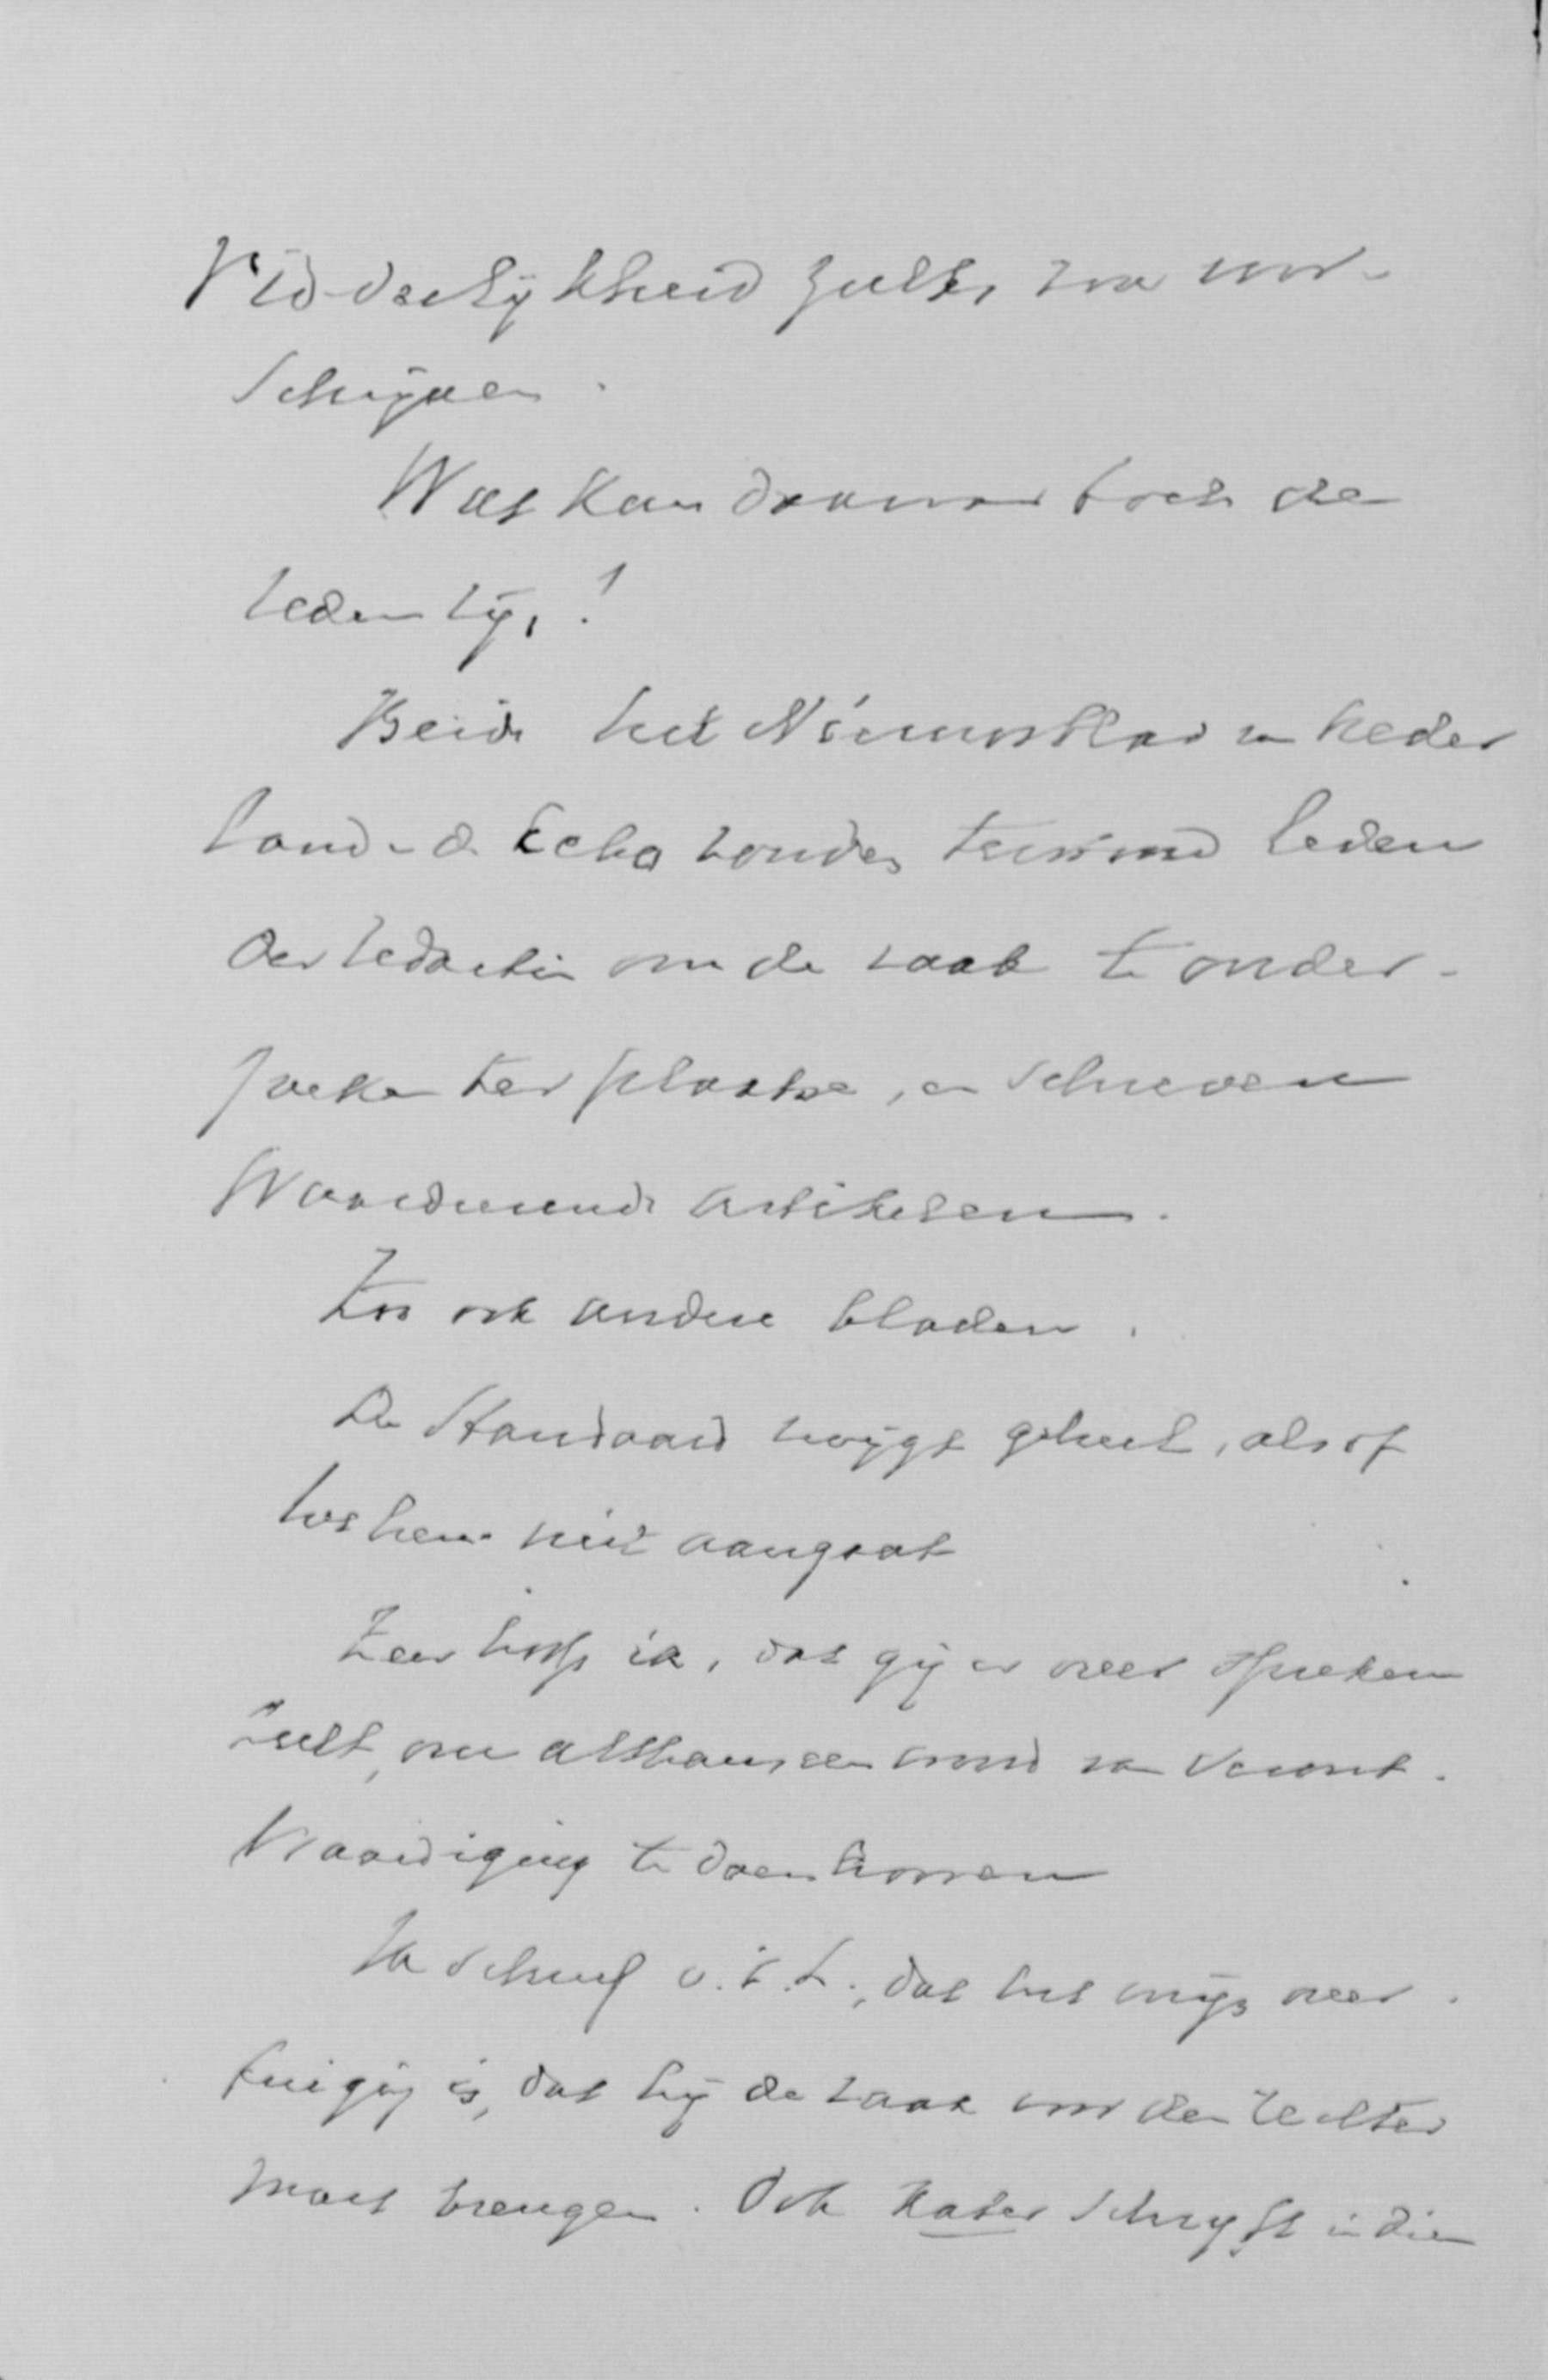 Ridderlijkheid zulks zou voor-
schrijven.
Wat kan daarvan toch de
reden zijn?
Beide het Nieuwsblad v. Neder
land en de Echo zonden terstond leden
der redactie om de zaak te onder-
zoeken ter plaatse, en schreven
waardeerende artikelen.
Zoo ook andere bladen.
De Standaard zwijgt geheel, alsof
het hem niet aangaat
Zeer hoop ik, dat gij er over spreken
zult, om althans een woord van veront-
waardiging te doen hooren
Ik schreef v. d. L., dat het mijn over-
tuiging is, dat hij de zaak voor den rechter
moet brengen. Ook Kater schrijft in dien